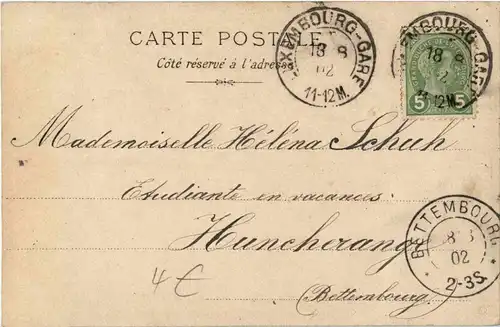 CARTE POSTALE
Côté réservé à l'adresse
LUXEMBOURG-GARE
18 8
02
11-12M.
EMBOURG-GARE
18 8
2
11-12M.
5 5
Mademoiselle Héléna Schuh
Etudiante en vacances
Huncherange
(Bettembourg)
BETTEMBOURG
02
2-3S.
4 €